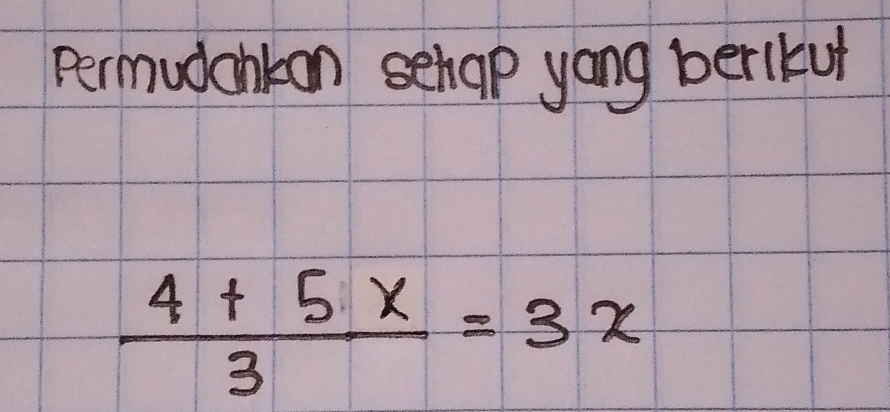 Permudahkan setiap yang berikut
4 + 5 x
3
= 3x